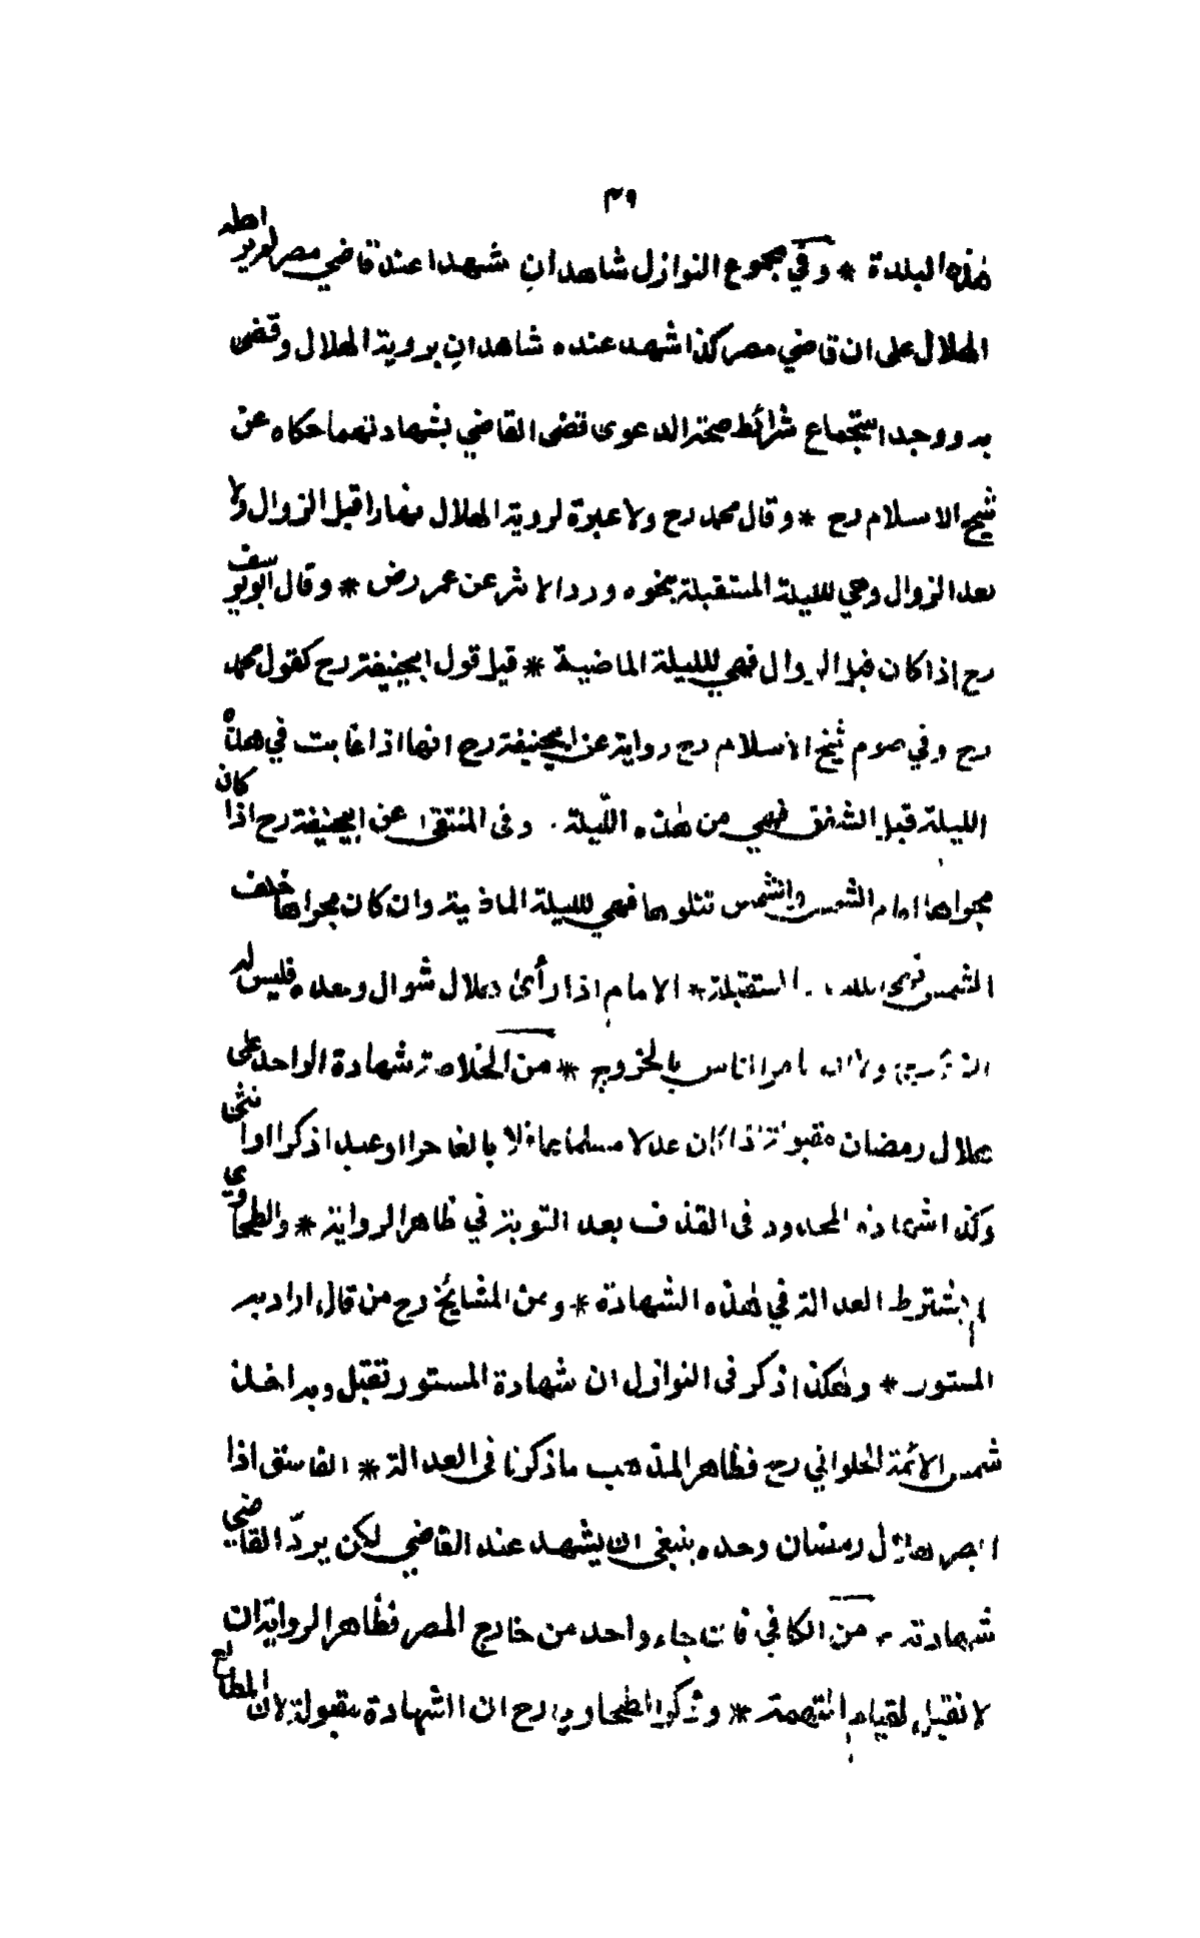 ٣٩
هذه البلدة * وفي مجموع النوازل شاهدان شهدا عند قاضي مصر لم ير اهله
الهلال على ان قاضي مصر كذا شهد عنده شاهدان بروية الهلال وقضى
به ووجد استجماع شرائط صحة الدعوى قضى القاضي بشهادتهما حكاه عن
شيخ الاسلام رح * وقال محمد رح ولا عبرة لروية الهلال نهارا قبل الزوال ولا
بعد الزوال وهي لليلة المستقبلة بنحوه ورد الاثر عن عمر رض * وقال ابو يوسف
رح اذا كان قبل الزوال فهي لليلة الماضية * قيل قول ابيحنيفة رح كقول محمد
رح وفي صوم شيخ الاسلام رح رواية عن ابيحنيفة رح انها اذا غابت في هذه
الليلة قبل الشفق فهي من هذه الليلة . وفى المنتقى عن ابيحنيفة رح اذا كان
مجراها امام الشمس والشمس تتلوها فهي لليلة الماضية وان كان مجراها خلف
الشمس فهي لليلة المستقبلة * الامام اذا رأى هلال شوال وحده فليس له
ولا ان يامر الناس بالخروج * من الخلاصة شهادة الواحد على
هلال رمضان مقبولة اذا كان عدلا مسلما عاقلا بالغا حرا او عبدا ذكرا او انثى
وكذا شهادة المحدود فى القذف بعد التوبة في ظاهر الرواية * والطحاوي
لم يشترط العدالة في هذه الشهادة * ومن المشايخ رح من قال اراد به
المستور * وهكذا ذكر فى النوازل ان شهادة المستور تقبل وبه اخذ
شمس الائمة الحلواني رح فظاهر المذهب ما ذكرنا فى العدالة * الفاسق اذا
ابصر هلال رمضان وحده ينبغي ان يشهد عند القاضي لكن يردّ القاضي
شهادته * من الكافي فان جاء واحد من خارج المصر فظاهر الرواية ان
لا تقبل لقيام التهمة * وذكر الطحاوي رح ان الشهادة مقبولة لان المطالع